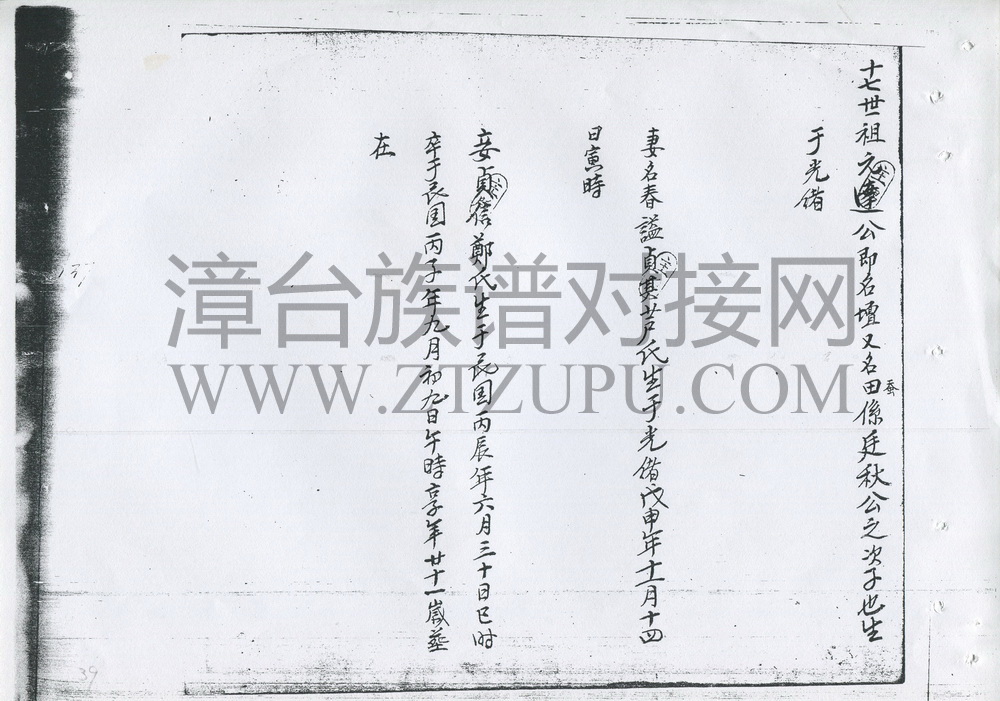 十七世祖元達公即名壇又名田係廷秋公之次子也生
蚕
于光緒
妻名春謚貞其芦氏生于光緒戊申年十一月十四
日寅時
妾貞信鄭氏生于民国丙辰年六月三十日巳时
卒于民国丙子年九月初九日午時享年廿十一歲葬
在
漳台族谱对接网
WWW.ZTZUPU.COM
39